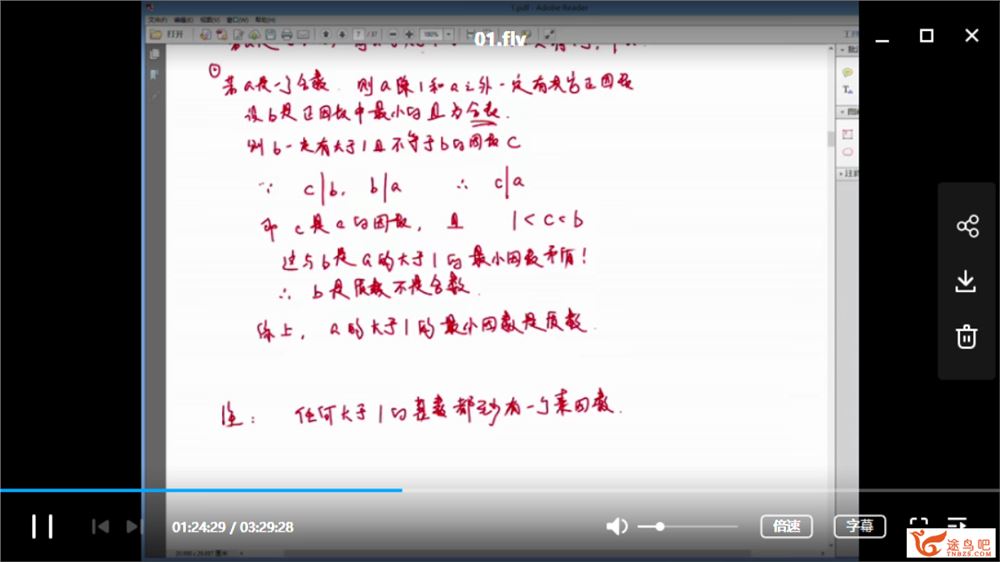 1.pdf - Adobe Reader
文件(F) 编辑(E) 视图(V) 窗口(W) 帮助(H)
打开 7 / 37 100%
01.flv
若a是一个合数.则a除1和a之外一定有其它正因数
设b是正因数中最小的且为合数.
则b一定有大于1且不等于b的因数C
∵ c|b, b|a ∴ c|a
即 c是a的因数, 且 1<c<b
这与b是a的大于1的最小因数矛盾!
∴ b是质数不是合数.
综上, a的大于1的最小因数是质数.
注: 任何大于1的整数都至少有一个素因数.
01:24:29 / 03:29:28
倍速
字幕
途鸟吧
TNBZS.COM